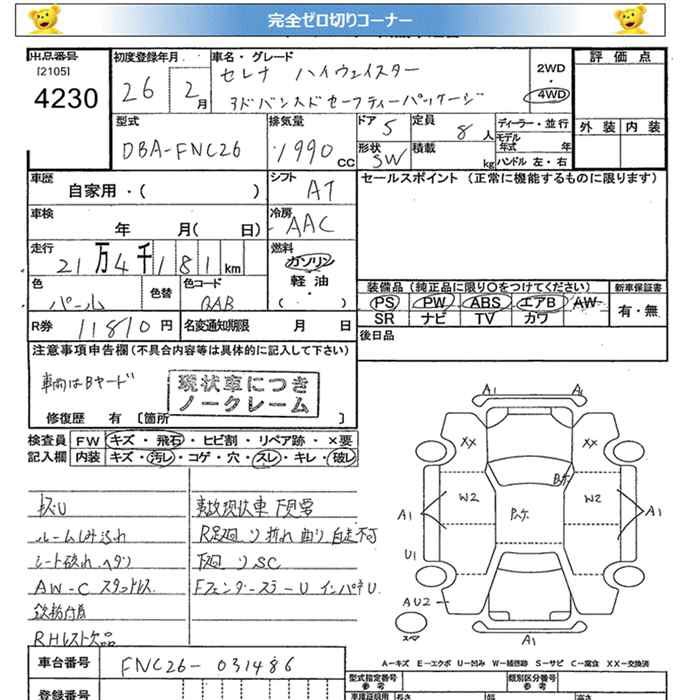 完全ゼロ切りコーナー
出品番号 初度登録年月 車名・グレード 評価点
[2105] セレナ ハイウェイスター 2WD
4230 26 2月 アドバンスドセーフティーパッケージ ・ 4WD
型式 排気量 ドア 5 定員 8人 ディーラー・並行 外装 内装
DBA-FNC26 1990cc 形状 SW 積載 kg モデル年式 年
ハンドル 左・右
車歴 シフト AT セールスポイント (正常に機能するものに限ります)
自家用・( )
車検 冷房 AAC
年 月( 日)
走行 21万4千181km 燃料 ガソリン
軽油
・( )
色 パール 色替 色コード QAB
装備品(純正品に限り○をつけてください) 新車保証書
PS PW ABS エアB AW 有・無
SR ナビ TV カワ
R券 11810円 名変通知期限 月 日 後日品
注意事項申告欄(不具合内容等は具体的に記入して下さい)
車両はBヤード 現状車につき
ノークレーム
修復歴 有 [箇所 ]
検査員 FW キズ・飛石・ヒビ割・リペア跡・×要
記入欄 内装 キズ・汚レ・コゲ・穴・スレ・キレ・破レ
事故現状車 下見要
ルームしみ汚れ R足廻り折れ曲り 自走不可
シート破れ、ヘタリ 下廻りSC
AW-C スタッドレス FフェンダーステーU インパネU
鉄粉付着
RHレスト欠品
A1 A1
XX XX
Bケ
W2 W2
A1 Pケ A1
U1
AU2
スペア
A1
A-キズ E-エクボ U-凹み W-補修跡 S-サビ C-腐食 XX-交換済
車台番号 FNC26-031486 型式指定番号 参考 類別区分番号 参考
登録番号 長さ 幅 高さ